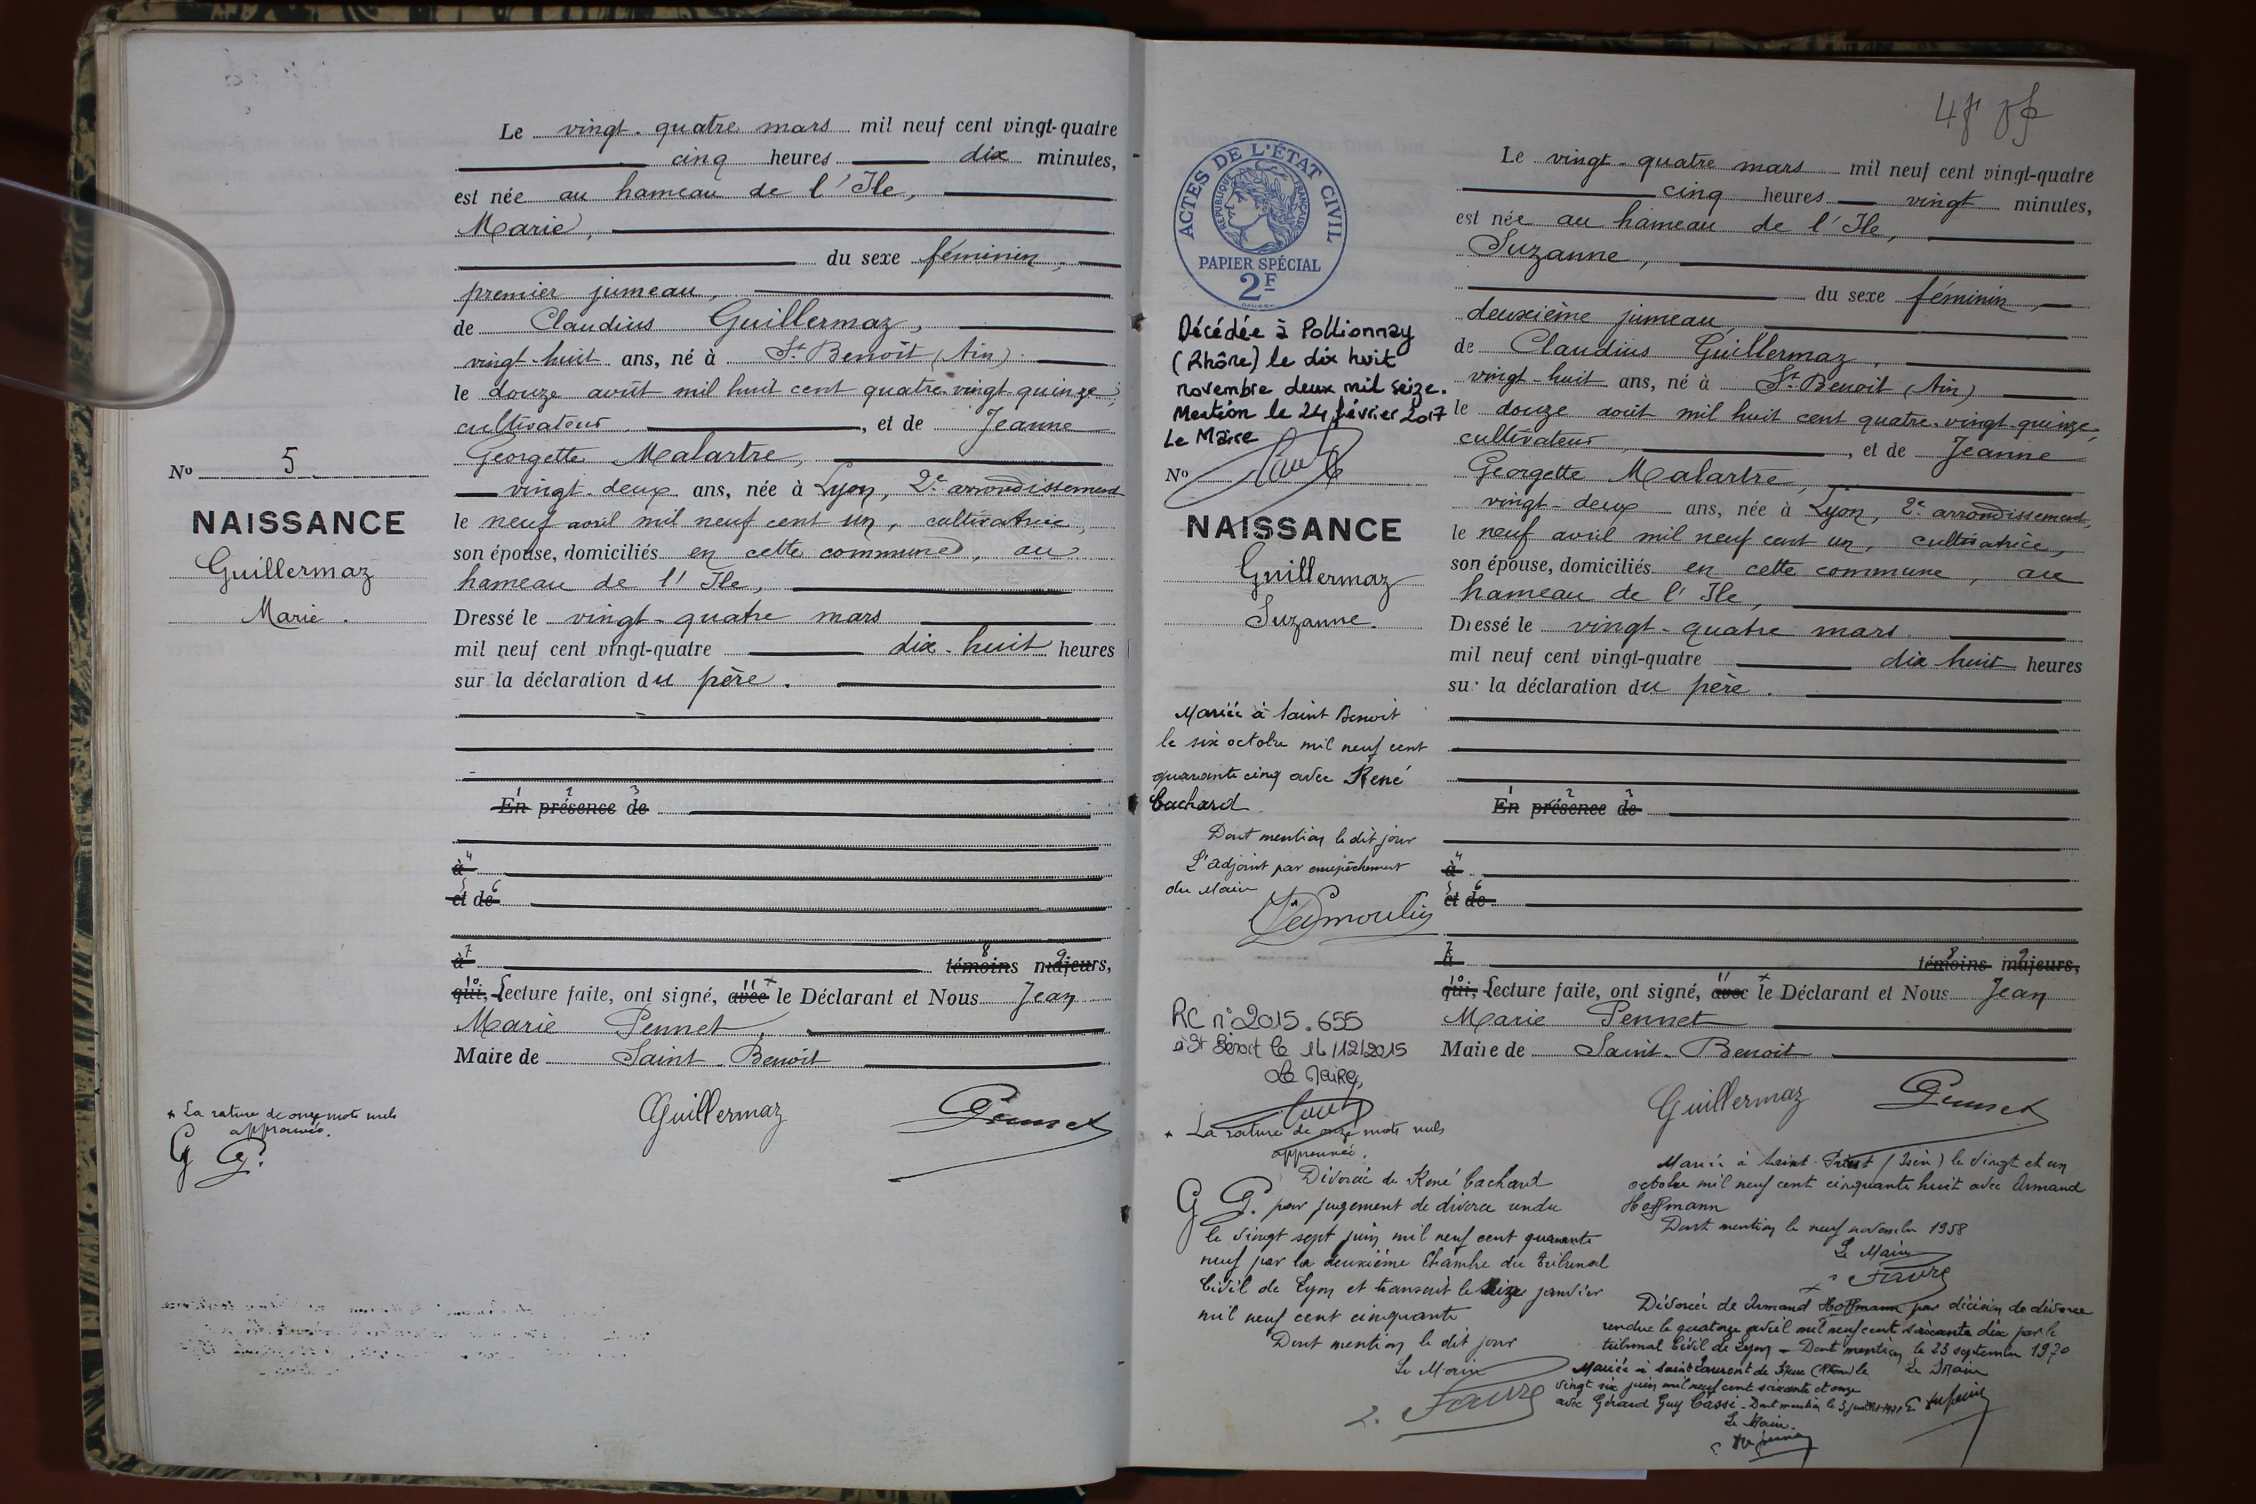 Le vingt-quatre mars mil neuf cent vingt-quatre
cinq heures dix minutes,
est née au hameau de l'Ile,
Marie,
du sexe féminin,
premier jumeau,
de Claudius Guillermaz,
vingt-huit ans, né à St Benoît (Ain)
le douze août mil huit cent quatre-vingt quinze,
cultivateur, et de Jeanne
Georgette Malartre,
vingt-deux ans, née à Lyon, 2e arrondissement
le neuf avril mil neuf cent un, cultivatrice,
son épouse, domiciliés en cette commune, au
hameau de l'Ile,
Dressé le vingt-quatre mars
mil neuf cent vingt-quatre dix-huit heures
sur la déclaration du père.
En présence de
à
et de
à témoins majeurs,
qui, Lecture faite, ont signé, avec le Déclarant et Nous Jean
Marie Pennet,
Maire de Saint-Benoît
Guillermaz
Pennet
No 5
NAISSANCE
Guillermaz
Marie.
* La rature de onze mots nuls
approuvée.
G P.
ACTES DE L'ÉTAT CIVIL
RÉPUBLIQUE FRANÇAISE
PAPIER SPÉCIAL
2F
Décédée à Pollionnay
(Rhône) le dix huit
novembre deux mil seize.
Mention le 24 février 2017
Le Maire
No
NAISSANCE
Guillermaz
Suzanne.
Mariée à Saint Benoit
le six octobre mil neuf cent
quarante cinq avec René
Cachard
Dont mention le dit jour
L'adjoint par empêchement
du Maire
RC n°2015.655
à St Benoit le 16/12/2015
Le Maire,
* La rature de onze mots nuls
approuvée.
G P.
Divorcée de René Cachard
par jugement de divorce rendu
le vingt sept juin mil neuf cent quarante
neuf par la deuxième Chambre du Tribunal
Civil de Lyon et transcrit le seize janvier
mil neuf cent cinquante
Dont mention le dit jour
Le Maire
Favre
Le vingt-quatre mars mil neuf cent vingt-quatre
cinq heures vingt minutes,
est née au hameau de l'Ile,
Suzanne,
du sexe féminin,
deuxième jumeau,
de Claudius Guillermaz,
vingt-huit ans, né à St Benoit (Ain)
le douze août mil huit cent quatre-vingt-quinze,
cultivateur, et de Jeanne
Georgette Malartre,
vingt-deux ans, née à Lyon, 2e arrondissement,
le neuf avril mil neuf cent un, cultivatrice,
son épouse, domiciliés en cette commune, au
hameau de l'Ile,
Dressé le vingt-quatre mars
mil neuf cent vingt-quatre dix huit heures
sur la déclaration du père.
En présence de
à
et de
à témoins majeurs,
qui, Lecture faite, ont signé, avec le Déclarant et Nous Jean
Marie Pennet
Maire de Saint-Benoit
Guillermaz
Pennet
Mariée à Saint-Priest (Isère) le vingt et un
octobre mil neuf cent cinquante huit avec Armand
Hoffmann
Dont mention le neuf novembre 1958
Le Maire
Favre
Divorcée de Armand Hoffmann par décision de divorce
rendue le quatorze avril mil neuf cent soixante dix par le
tribunal Civil de Lyon - Dont mention le 23 septembre 1970
Le Maire
Mariée à Saint Laurent de (Rhône) le
vingt six juin mil neuf cent soixante et onze
avec Gérard Guy Cassi - Dont mention le 3 juillet 1971
Le Maire